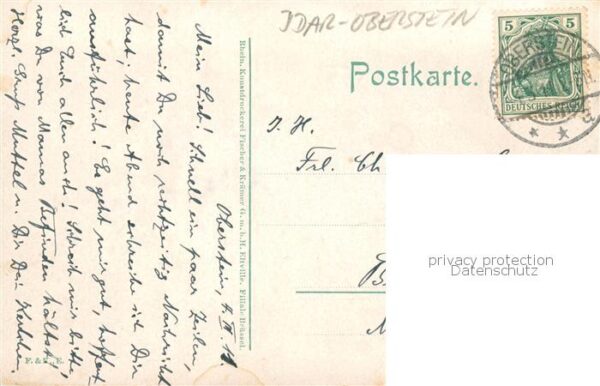 JDAR-OBERSTEIN
5 5
DEUTSCHES REICH
OBERSTEIN
Postkarte.
J. H.
Frl. Ch
B
privacy protection
Datenschutz
Rhein. Kunstdruckerei Fischer & Krämer G. m. b. H. Eltville. Filiale Brüssel.
F. & K., E.
Oberstein,
Mein Lieb! Schnell ein paar Zeilen,
damit Du noch rechtzeitig Nachricht
hast; heute Abend schreibe ich Dir
ausführlich! Es geht mir gut, hoffent
lich Euch allen auch! Schreib mir bitte,
was Du von Mamas Befinden hältst.
Herzl. Gruß Mittel u. Dir Dein